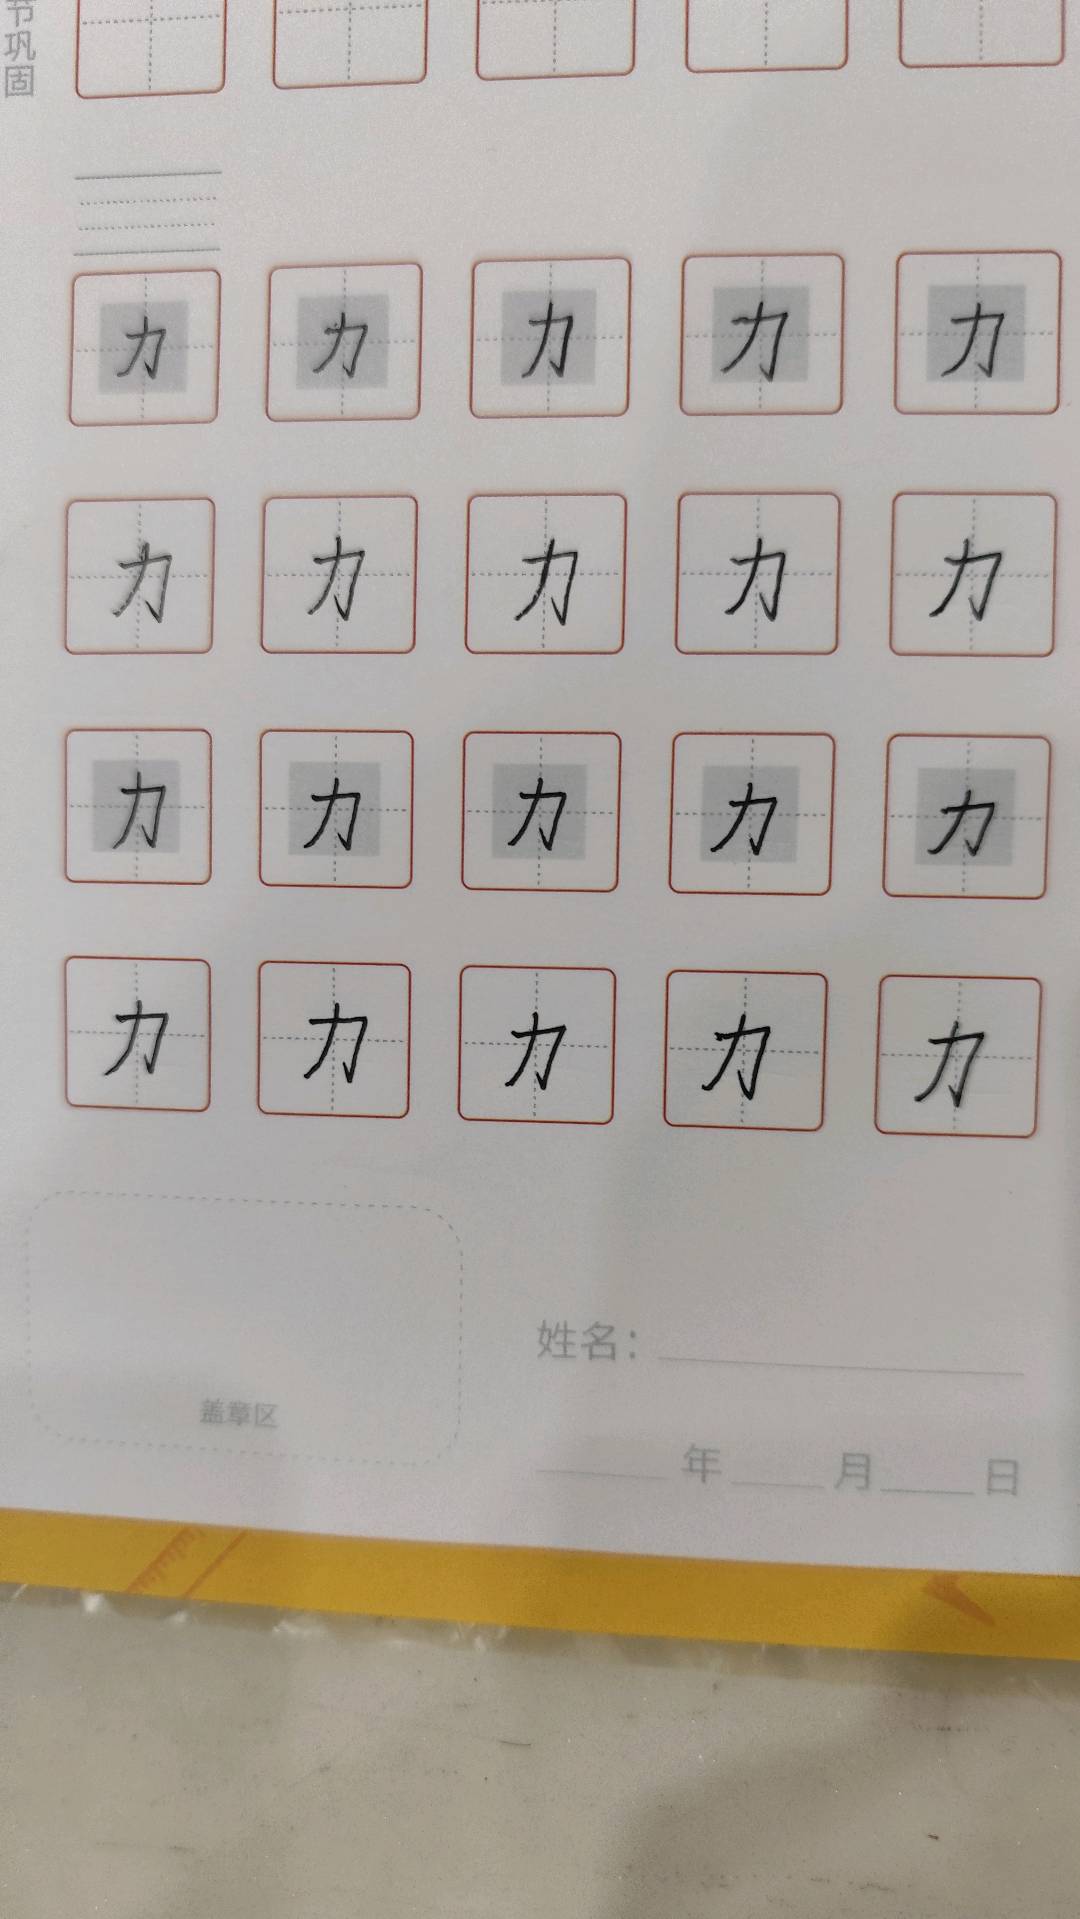 节巩固
力 力 力 力 力
力 力 力 力 力
力 力 力 力 力
力 力 力 力 力
姓名：
盖章区
年 月 日